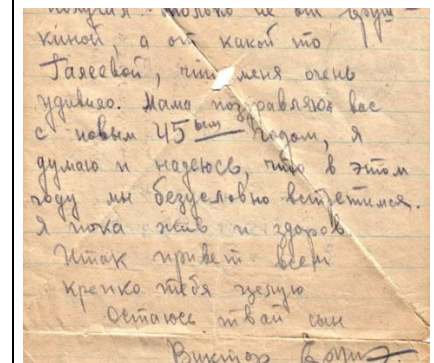 получил. только не от Груш-
киной, а от какой то
Галеевой, что меня очень
удивило. Мама поздравляю вас
с новым 45ым годом, я
думаю и надеюсь, что в этом
году мы безусловно встретимся.
Я пока жив и здоров
Итак привет всем
крепко тебя целую
Остаюсь твой сын
Виктор